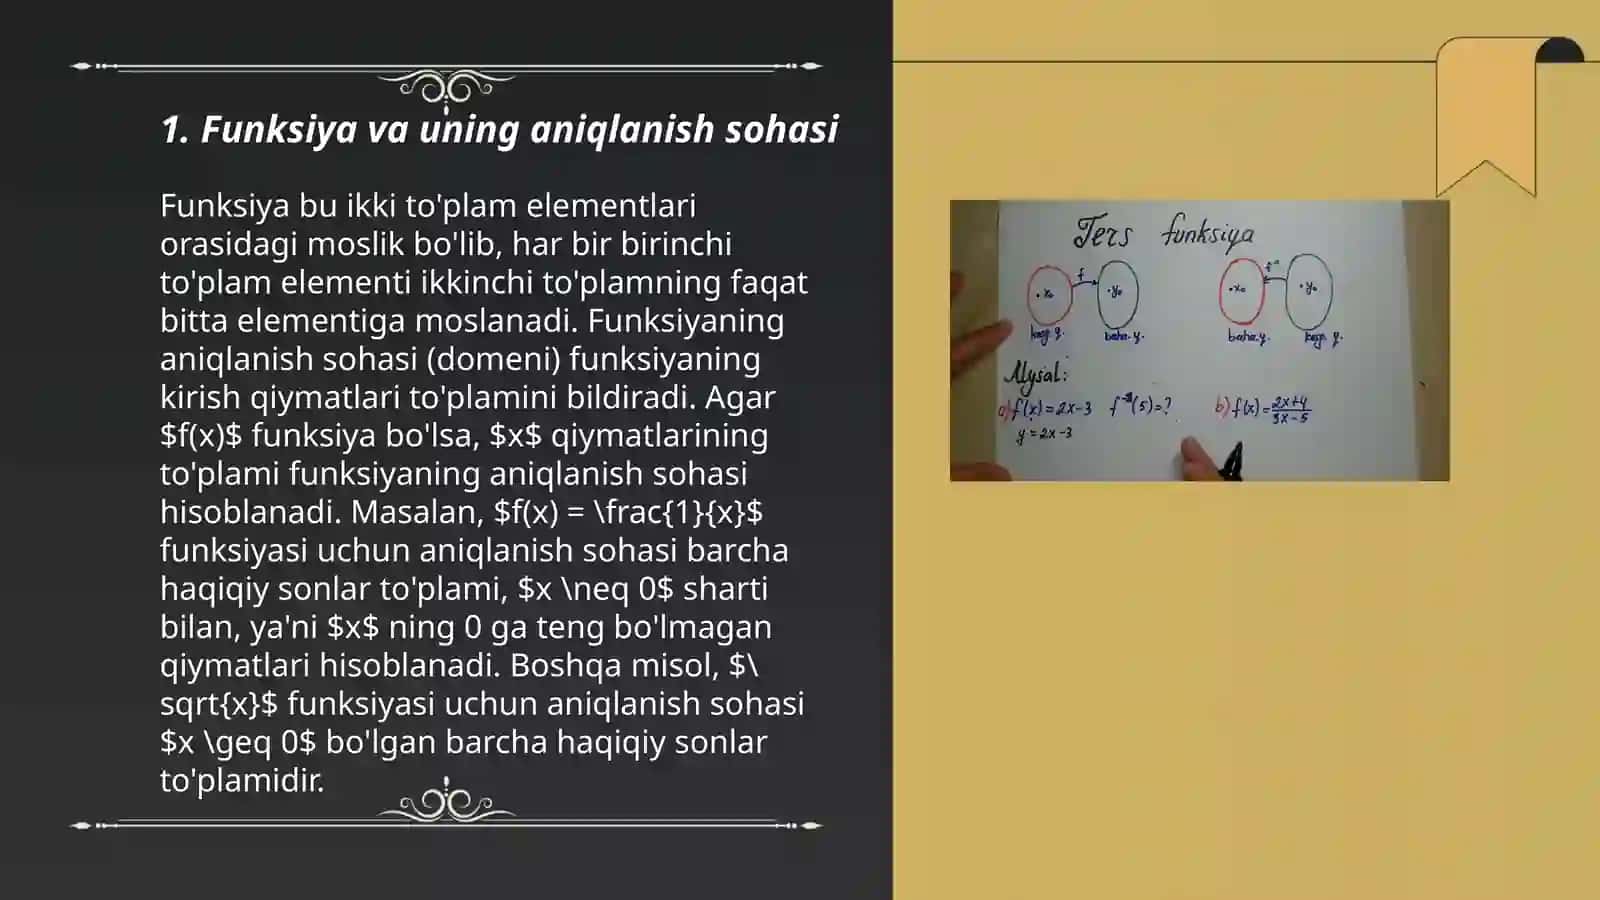 1. Funksiya va uning aniqlanish sohasi
Funksiya bu ikki to'plam elementlari
orasidagi moslik bo'lib, har bir birinchi
to'plam elementi ikkinchi to'plamning faqat
bitta elementiga moslanadi. Funksiyaning
aniqlanish sohasi (domeni) funksiyaning
kirish qiymatlari to'plamini bildiradi. Agar
$f(x)$ funksiya bo'lsa, $x$ qiymatlarining
to'plami funksiyaning aniqlanish sohasi
hisoblanadi. Masalan, $f(x) = \frac{1}{x}$
funksiyasi uchun aniqlanish sohasi barcha
haqiqiy sonlar to'plami, $x \neq 0$ sharti
bilan, ya'ni $x$ ning 0 ga teng bo'lmagan
qiymatlari hisoblanadi. Boshqa misol, $\
sqrt{x}$ funksiyasi uchun aniqlanish sohasi
$x \geq 0$ bo'lgan barcha haqiqiy sonlar
to'plamidir.
Ters funksiya
f f⁻¹
x₀ y₀ x₀ y₀
baha.y. baha.y.
Mysal:
a) f(x)=2x-3 f⁻¹(5)=? b) f(x)=(2x+4)/(3x-5)
y=2x-3